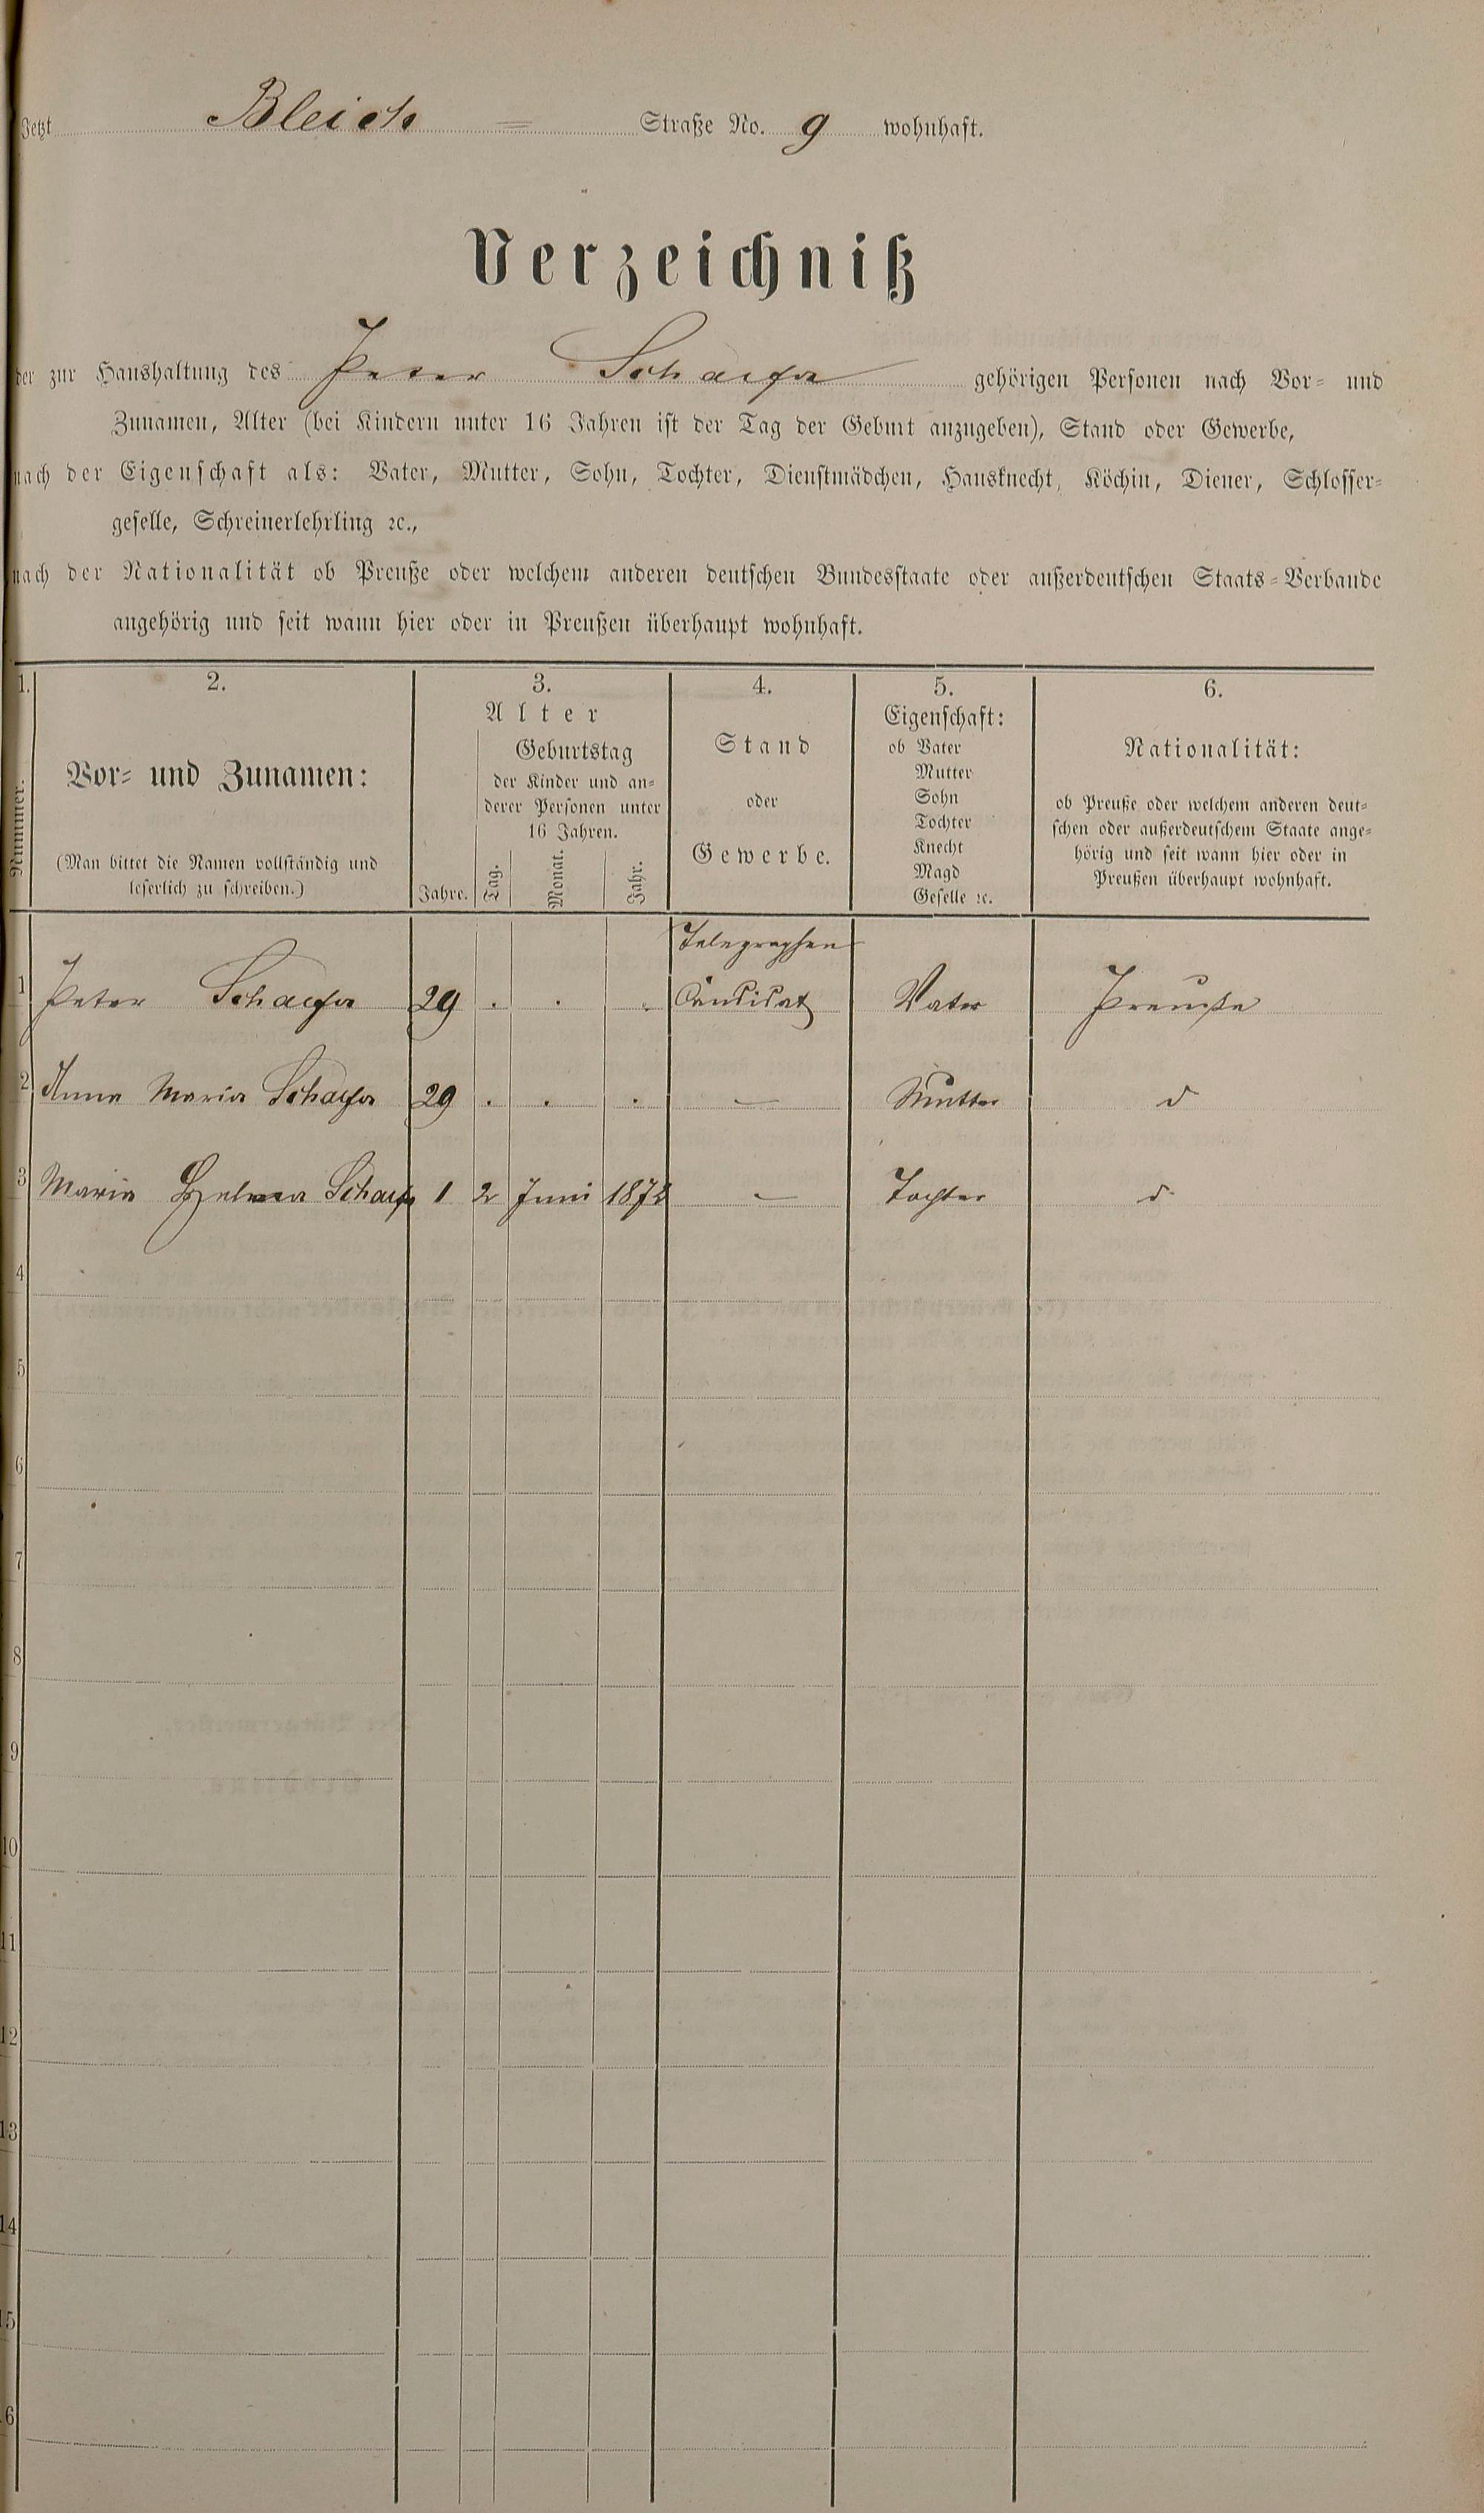 Jetzt Bleich = Straße No. 9 wohnhaft.
Verzeichniß
der zur Haushaltung des Peter Schaefer gehörigen Personen nach Vor- und
Zunamen, Alter (bei Kindern unter 16 Jahren ist der Tag der Geburt anzugeben), Stand oder Gewerbe,
nach der Eigenschaft als: Vater, Mutter, Sohn, Tochter, Dienstmädchen, Hausknecht, Köchin, Diener, Schlosser-
geselle, Schreinerlehrling ꝛc.,
nach der Nationalität ob Preuße oder welchem anderen deutschen Bundesstaate oder außerdeutschen Staats-Verbande
angehörig und seit wann hier oder in Preußen überhaupt wohnhaft.
1. 2. 3. 4. 5. 6.
Nummer.
Vor- und Zunamen:
(Man bittet die Namen vollständig und
leserlich zu schreiben.)
Alter
Geburtstag
der Kinder und an-
derer Personen unter
16 Jahren.
Jahre. Tag. Monat. Jahr.
Stand
oder
Gewerbe.
Eigenschaft:
ob Vater
Mutter
Sohn
Tochter
Knecht
Magd
Geselle ꝛc.
Nationalität:
ob Preuße oder welchem anderen deut-
schen oder außerdeutschem Staate ange-
hörig und seit wann hier oder in
Preußen überhaupt wohnhaft.
Telegraphen
1 Peter Schaefer 29 . . . Candidat Vater Preuße
2 Anna Maria Schaefer 29 . . . — Mutter d
3 Maria Schaef 1 2 Juni — Tochter d
4
5
6
7
8
9
10
11
12
13
14
15
6